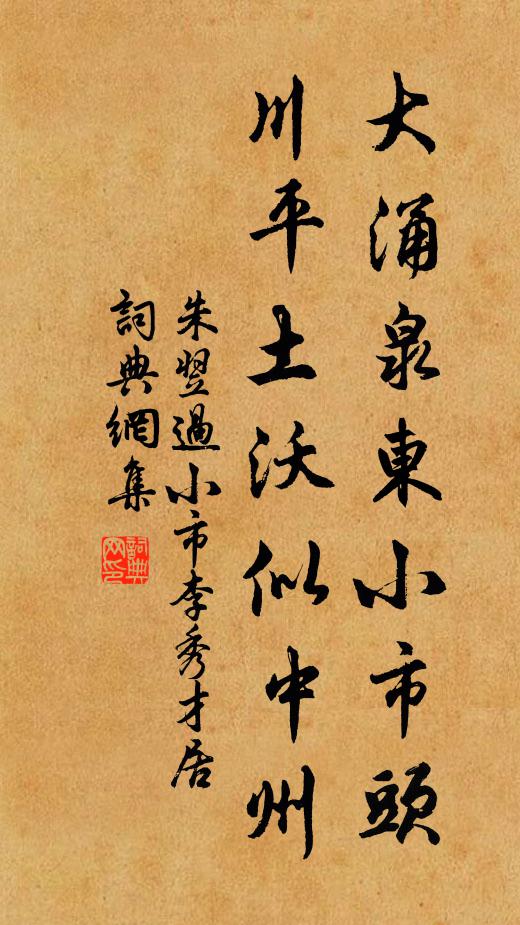 大涌泉東小市頭
川平土沃似中州
朱翌過小市李秀才居
詞典網集
詞典网印